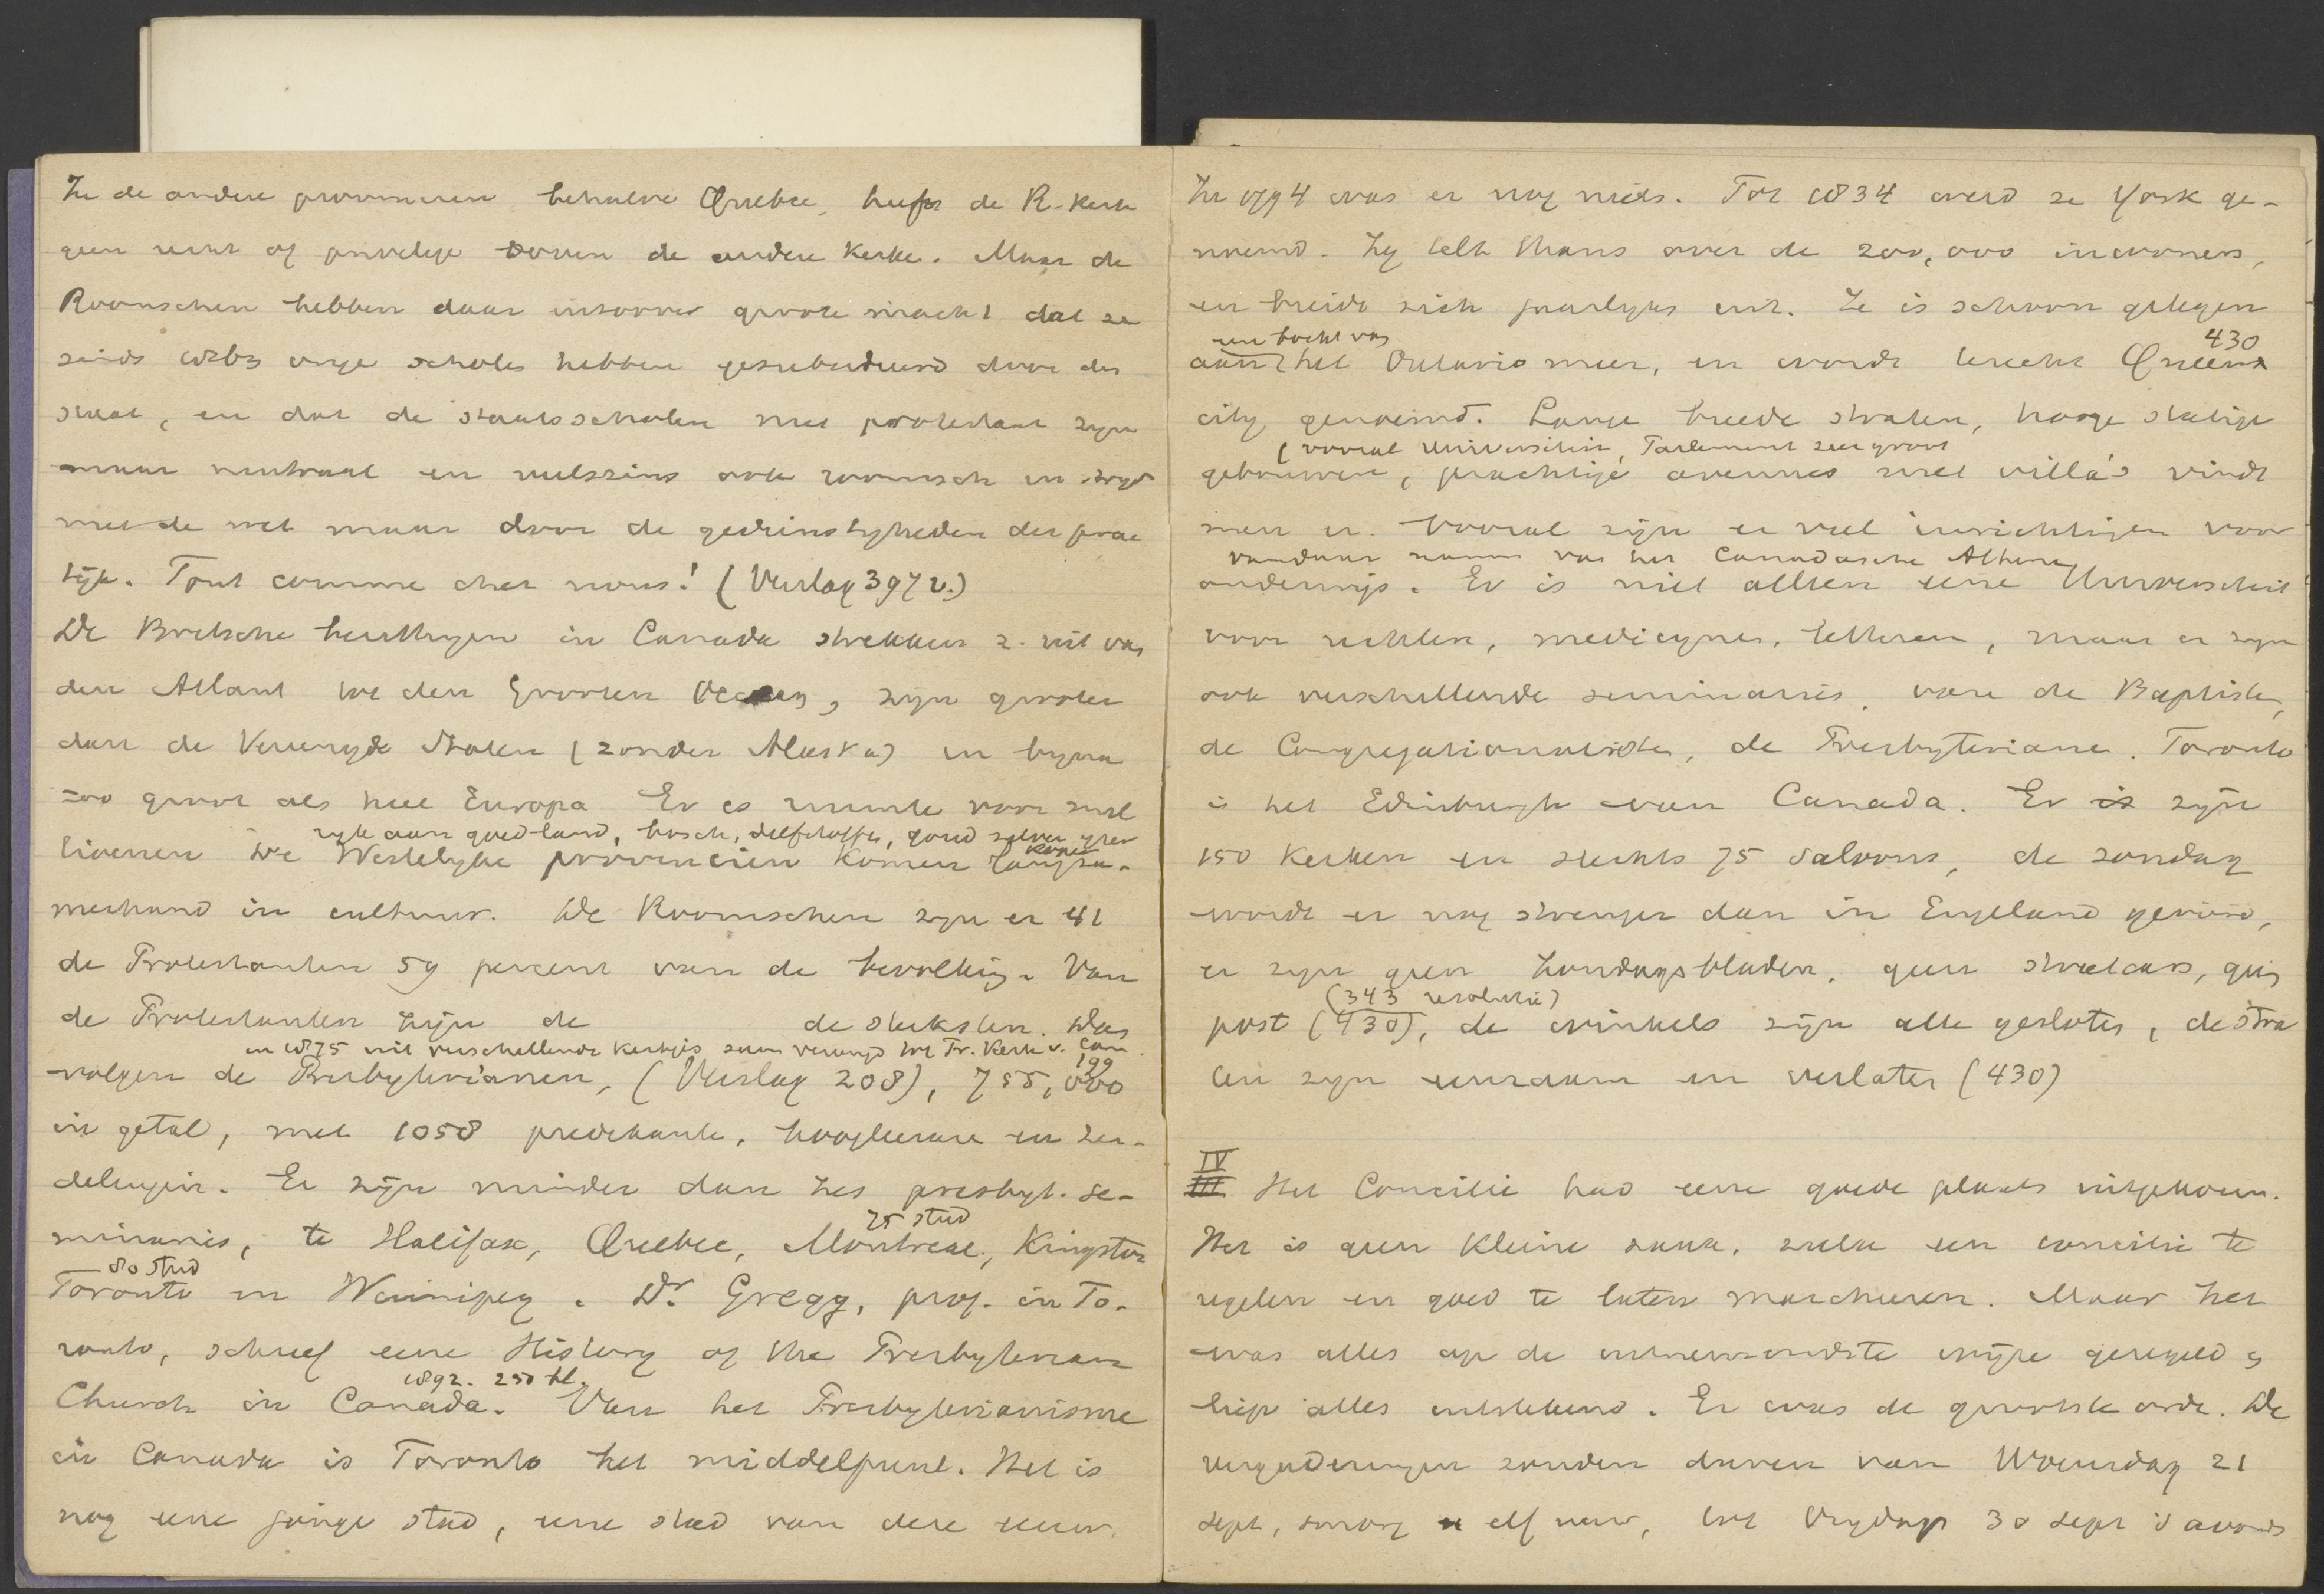 In de andere provincien behalve Quebec, heeft de R. Kerk
geen recht of privilege boven de andere Kerke. Maar de
Roomschen hebben daar inzoover groote macht dat ze
sinds 1863 vrije scholen hebben gesubsidieerd door den
staat, en dat de staatsscholen niet protestant zijn
maar neutraal en veelszins ook roomsch in strijd
met de wet maar door de gedienstigheden der prac
tijk. Tout comme chez nous! (Verslag 397 v.)
De Britsche bezittingen in Canada strekken z. uit van
den Atlant tot den Grooten Oceaan, zijn grooter
dan de Vereenigde Staten (zonder Alaska) en bijna
zoo groot als heel Europa Er is ruimte voor mil
rijk aan goed land, bosch, delfstoffen, goud zilver ijzer
koper
lioenen De Westelijke provincien komen langza-
merhand in cultuur. De Roomschen zijn er 41
de Protestanten 59 percent van de bevolking. Van
de Protestanten zijn de de sterksten. Dan
in 1875 uit verschellende kerkjes saam vereenigd tot Pr. Kerk v. Can.
199
volgen de Presbyterianen, (Verslag 208), 755,000
in getal, met 1058 predikante, hoogleerare en zen-
delingen. Er zijn minder dan zes presbyt. se-
25 stud
minaries, te Halifax, Quebec, Montreal, Kingston
80 stud
Toronto en Winnipeg. Dr. Gregg, prof. in To-
ronto, schreef eene History of the Presbyterian
1892. 250 bl.
Church in Canada. Van het Presbyterianisme
in Canada is Toronto het middelpunt. Het is
nog eene jonge stad, eene stad van deze eeuw.
In 1794 was er nog niets. Tot 1834 werd ze York ge-
noemd. Zij telt thans over de 200,000 inwoners,
en breidt zich jaarlijks uit. Ze is schoon gelegen
een bocht van
430
aan het Ontario meer, en wordt terecht Queens
city genoemd. Lange breede straten, hooge statige
(vooral Universiteit, Parlement zeer groot
gebouwen, prachtige avenues met villa's vindt
men er. Vooral zijn er veel inrichtingen voor
vandaar naam van het Canadasche Athene
onderwijs. Er is niet alleen eene Universiteit
voor rechten, medicijnen, letteren, maar er zijn
ook verschellende seminaries, van de Baptisten,
de Congregationalisten, de Presbyteriane. Toronto
is het Edinburgh van Canada. Er is zijn
150 Kerken en slechts 75 saloons, de zondag
wordt er nog strenger dan in Engeland gevierd,
er zijn geen Zondagsbladen, geen streetcars, geen
(343 resolutie)
post (430), de winkels zijn alle gesloten, de stra
ten zijn eenzaam en verlaten (430)
IV
III Het Concilie had eene goede plaats uitgekozen.
Het is geen kleine zaak, zulk een concilie te
regelen en goed te laten marcheeren. Maar het
was alles op de uitnemendste wijze geregeld en
liep alles uitstekend. Er was de grootste orde. De
vergaderingen zouden duren van Woensdag 21
Sept, smorg elf uur, tot Vrijdags 30 Sept 's avonds